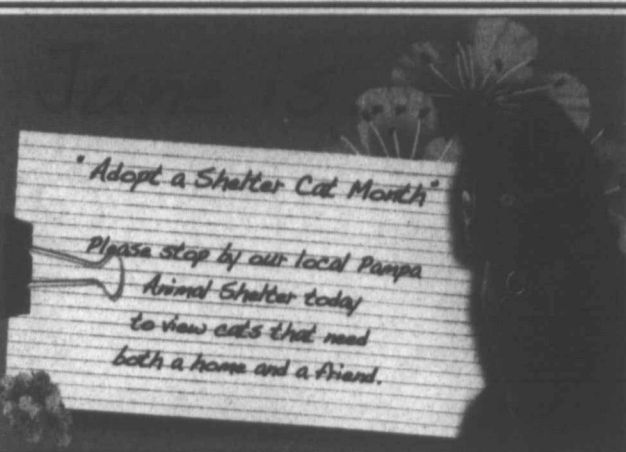 June is
"Adopt a Shelter Cat Month"
Please stop by our local Pampa
Animal Shelter today
to view cats that need
both a home and a friend.